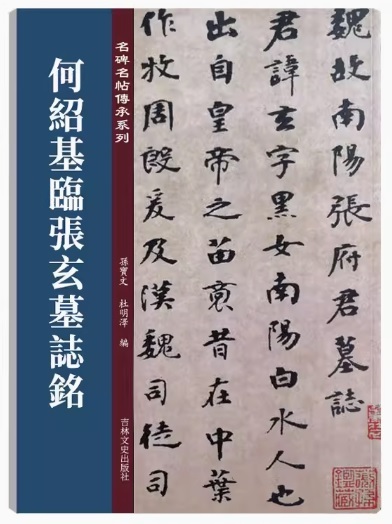 名碑名帖傳承系列
何紹基臨張玄墓誌銘
孫寶文 杜明澤 編
吉林文史出版社
魏故南陽張府君墓誌
君諱玄字黑女南陽白水人也
出自皇帝之苗裔昔在中葉
作牧周殷爰及漢魏司徒司